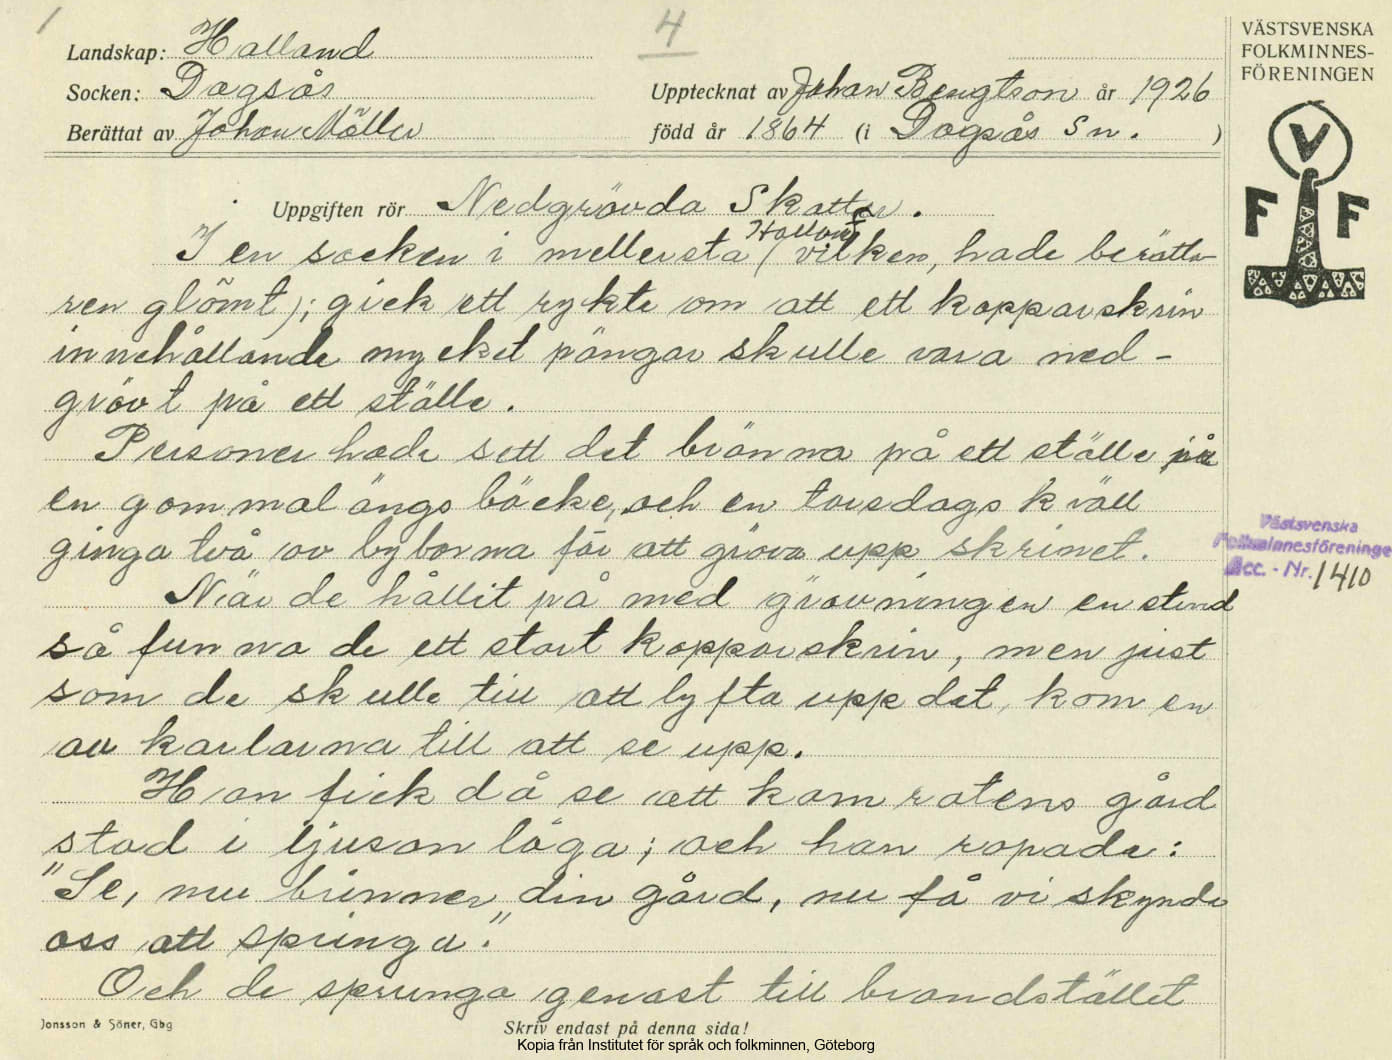 1
4
VÄSTSVENSKA
FOLKMINNES-
FÖRENINGEN
V
F F
Landskap: Halland
Socken: Dagsås
Upptecknat av Johan Bengtson år 1926
Berättat av Johan Möller
född år 1864 (i Dagsås Sn. )
Uppgiften rör Nedgrövda Skattar.
Halland
I en socken i mellersta (vilken, hade berätta-
ren glömt); gick ett rykte om att ett kopparskrin
innehållande mycket pängar skulle vara ned-
grövt på ett ställe.
Personer hade sett det bränna på ett ställe på
en gammal ängs bäcke, och en torsdags kväll
ginga två av byborna för att gröva upp skrinet.
Västsvenska
Folkminnesföreninge
Acc. - Nr. 1410
När de hållit på med grövningen en stund
så funna de ett stort kopparskrin, men just
som de skulle till att lyfta upp det, kom en
av karlarna till att se upp.
Han fick då se att kamratens gård
stod i ljusan låga; och han ropade:
"Se, nu brinner din gård, nu få vi skynda
oss att springa".
Och de sprunga genast till brandstället
Jonsson & Söner, Gbg
Skriv endast på denna sida!
Kopia från Institutet för språk och folkminnen, Göteborg